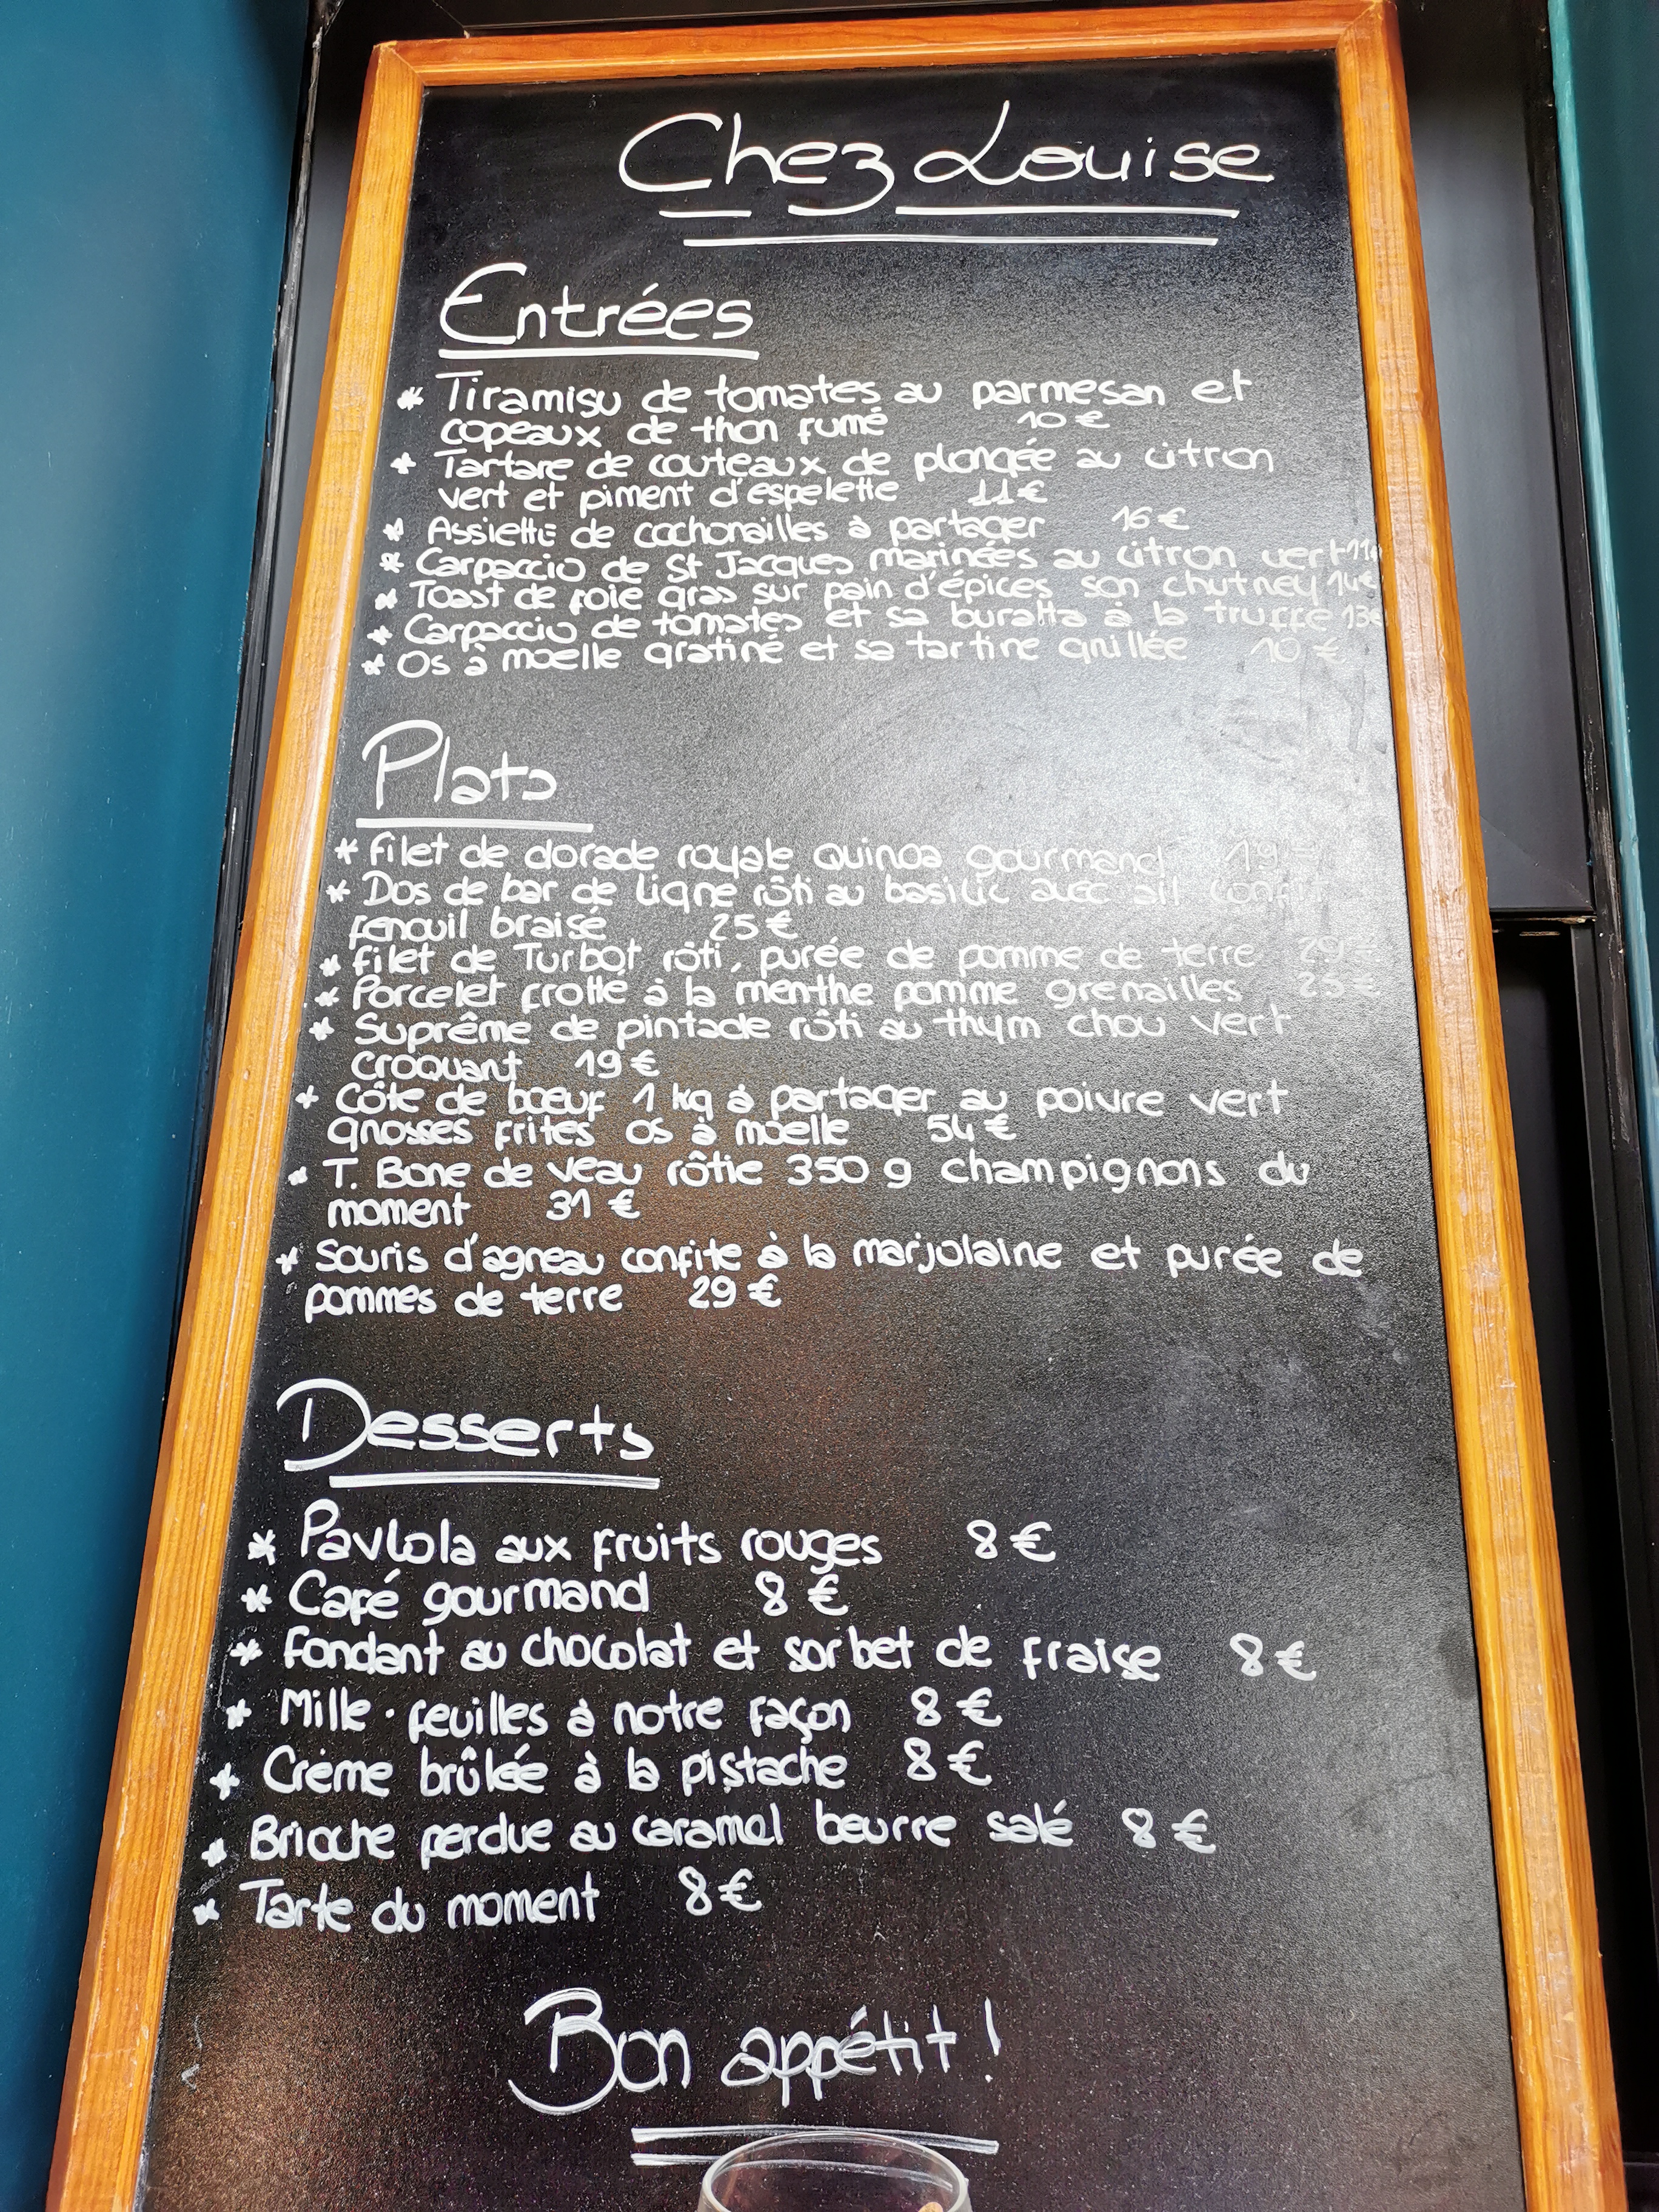 Chez Louise
Entrées
* Tiramisu de tomates au parmesan et
copeaux de thon fumé 10 €
* Tartare de couteaux de plongée au citron
vert et piment d'espelette 11 €
* Assiette de cochonailles à partager 16 €
* Carpaccio de St Jacques marinées au citron vert 11€
* Toast de foie gras sur pain d'épices son chutney 14€
* Carpaccio de tomates et sa buratta à la truffe 13€
* Os à moelle gratiné et sa tartine grillée 10 €
Plats
* Filet de dorade royale Quinoa gourmand 19 €
* Dos de bar de ligne rôti au basilic avec ail confit
fenouil braisé 25 €
* Filet de Turbot rôti, purée de pomme de terre 29 €
* Porcelet frotté à la menthe pomme grenailles 25 €
* Suprême de pintade rôti au thym chou vert
Croquant 19 €
* Côte de boeuf 1 kg à partager au poivre vert
grosses frites os à moelle 54 €
* T. Bone de veau rôtie 350 g champignons du
moment 31 €
* Souris d'agneau confite à la marjolaine et purée de
pommes de terre 29 €
Desserts
* Pavlola aux fruits rouges 8 €
* Café gourmand 8 €
* Fondant au chocolat et sorbet de fraise 8 €
* Mille-feuilles à notre façon 8 €
* Crème brûlée à la pistache 8 €
* Brioche perdue au caramel beurre salé 8 €
* Tarte du moment 8 €
Bon appétit !